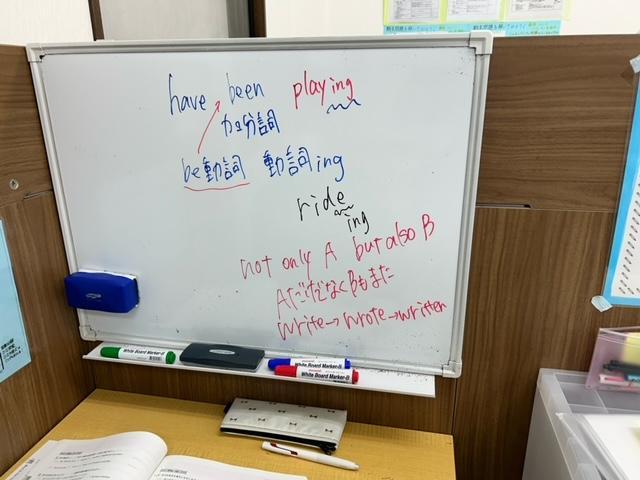 have been playing
カコ分詞
be動詞 動詞ing
ride
ing
not only A but also B
AだけだなくBもまた
write→wrote→written
White Board Marker-B
White Board Marker-B
White Board Marker-B